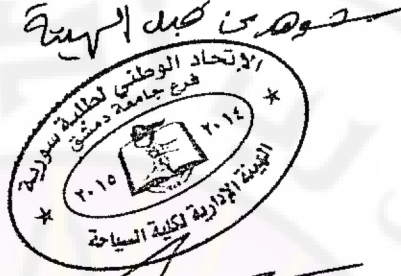 شوهد من قبل الهيئة
الإتحاد الوطني لطلبة سورية
فرع جامعة دمشق
٢٠١٤
٢٠١٥
الهيئة الإدارية لكلية السياحة